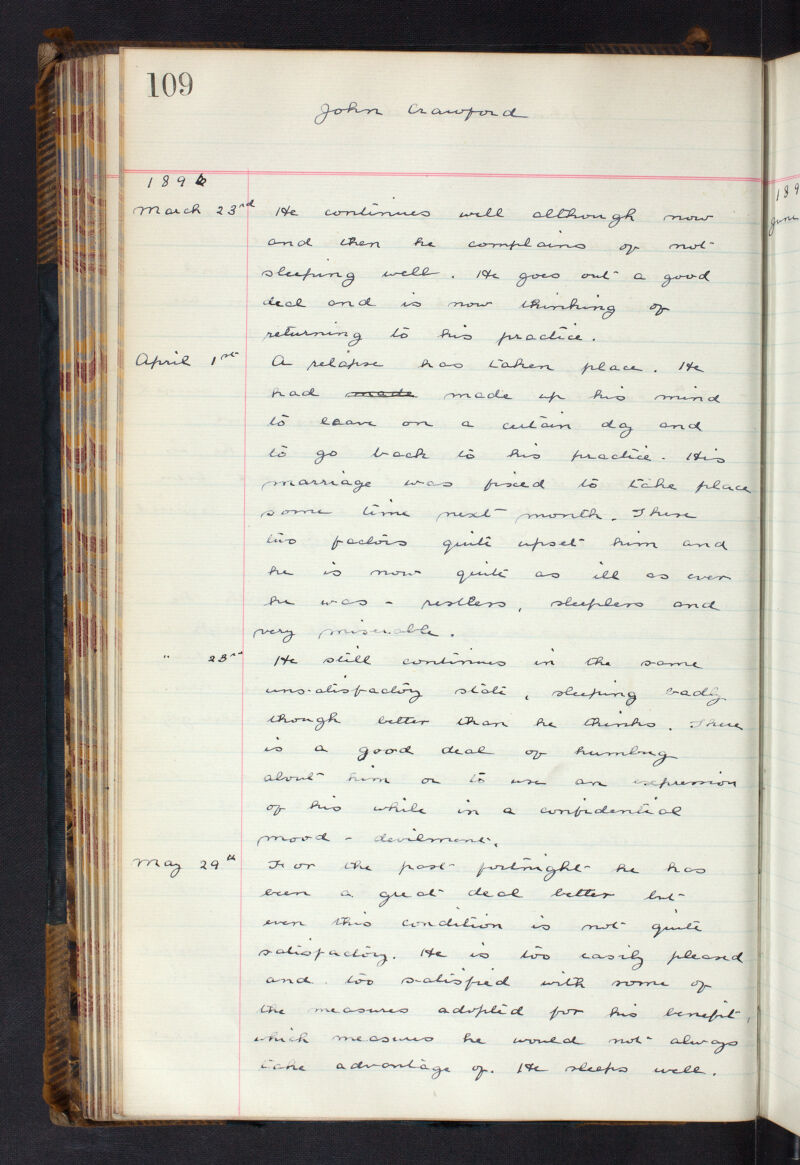 109
John Crawford
189
March 23rd He continues well although now
and then he complains of not
sleeping well. He goes out a good
deal and is now thinking of
returning to his practice.
April 1st A relapse has taken place. He
had made made up his mind
to leave on a certain day and
to go back to his practice. His
marriage was fixed to take place
some time next month. These
two factors quite upset him and
he is now quite as ill as ever
he was - restless, sleepless and
very miserable.
" He still continues in the same
unsatisfactory state, sleeping badly
though better than he thinks. There
is a good deal of humbug
about him or to use an expression
of his while in a confidential
mood - devilment.
May 29th For the past fortnight he has
been a great deal better but
even this condition is not quite
satisfactory. He is too easily pleased
and too satisfied with some of
the measures adopted for his benefit,
which measures he would not always
take advantage of. He sleeps well.
189
June